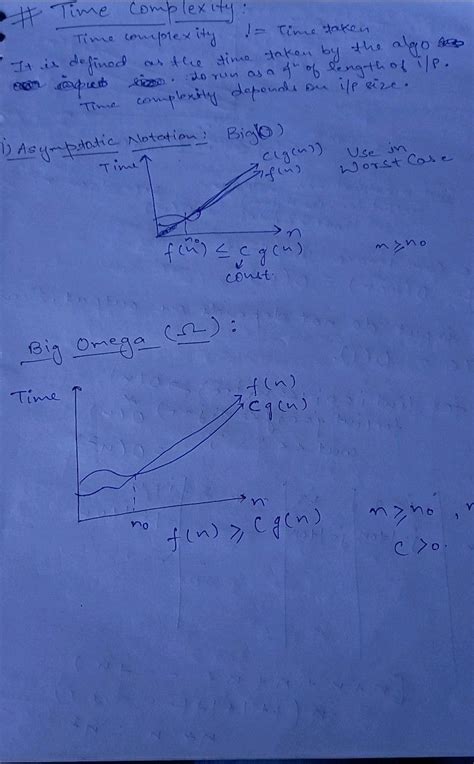 # Time Complexity :
Time complexity != Time taken
It is defined as the time taken by the algo
to run as a fⁿ of length of i/p.
Time complexity depends on i/p size.
i) Asymptotic Notation: Big(O)
Time
c(g(n))
f(n)
Use in
Worst Case
n₀
n
f(n) ≤ c g(n)
const.
n ≥ n₀
Big Omega (Ω) :
Time
f(n)
cg(n)
n₀
n
f(n) ≥ cg(n)
n ≥ n₀ ,
c > 0.